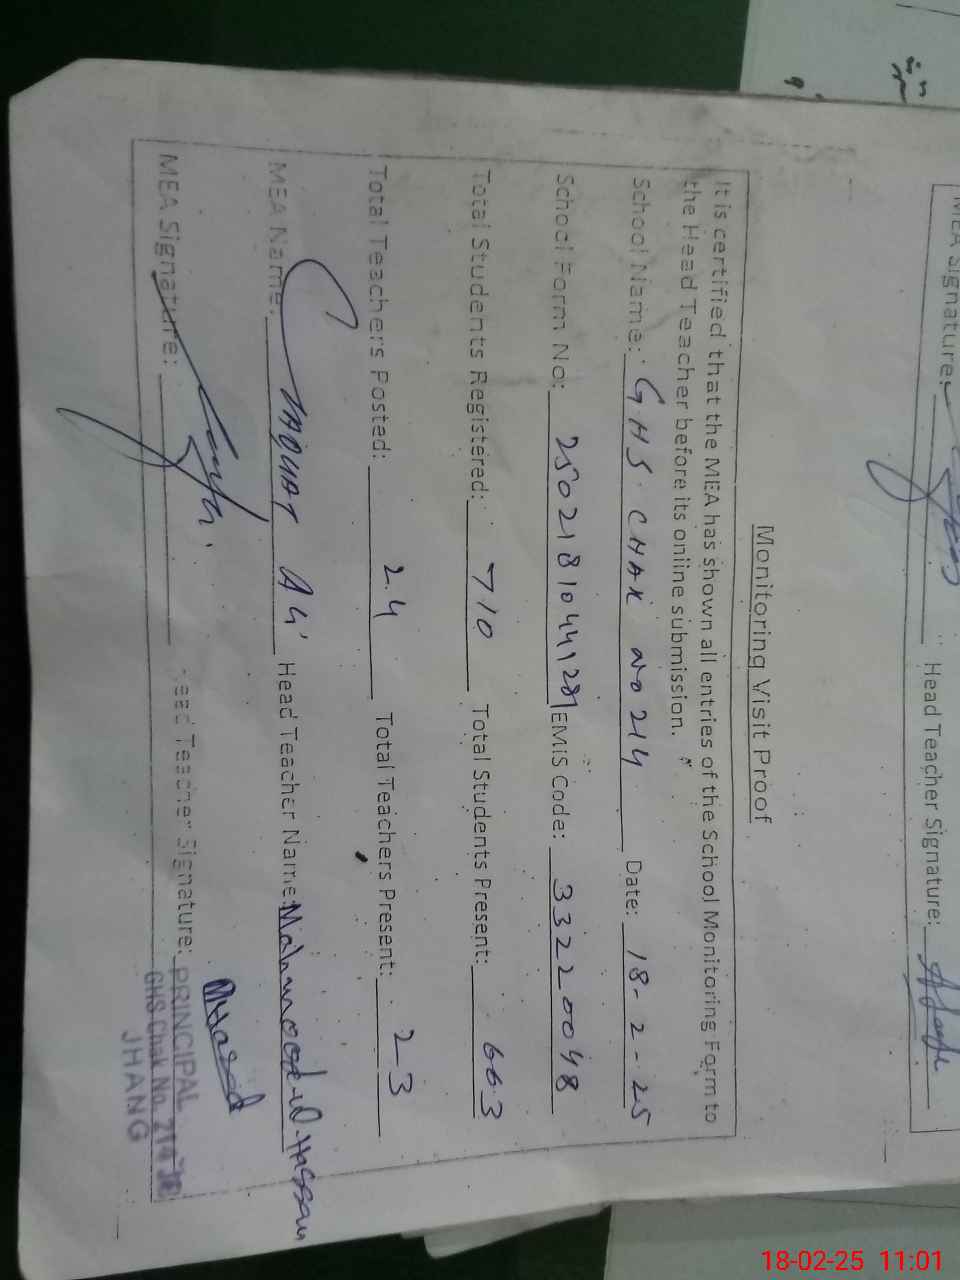 MEA Signature: Head Teacher Signature:
Monitoring Visit Proof
It is certified that the MEA has shown all entries of the School Monitoring Form to
the Head Teacher before its online submission.
School Name: GHS. CHAK NO 214 Date: 18-2-25
School Form No: 25021810441281 EMIS Code: 33220048
Total Students Registered: 710 Total Students Present: 663
Total Teachers Posted: 24 Total Teachers Present: 23
MEA Name: Ali Head Teacher Name: Mahmood-ul-Hassan
MEA Signature: Head Teacher Signature:
PRINCIPAL
GHS Chak No. 214 JB
JHANG
18-02-25 11:01